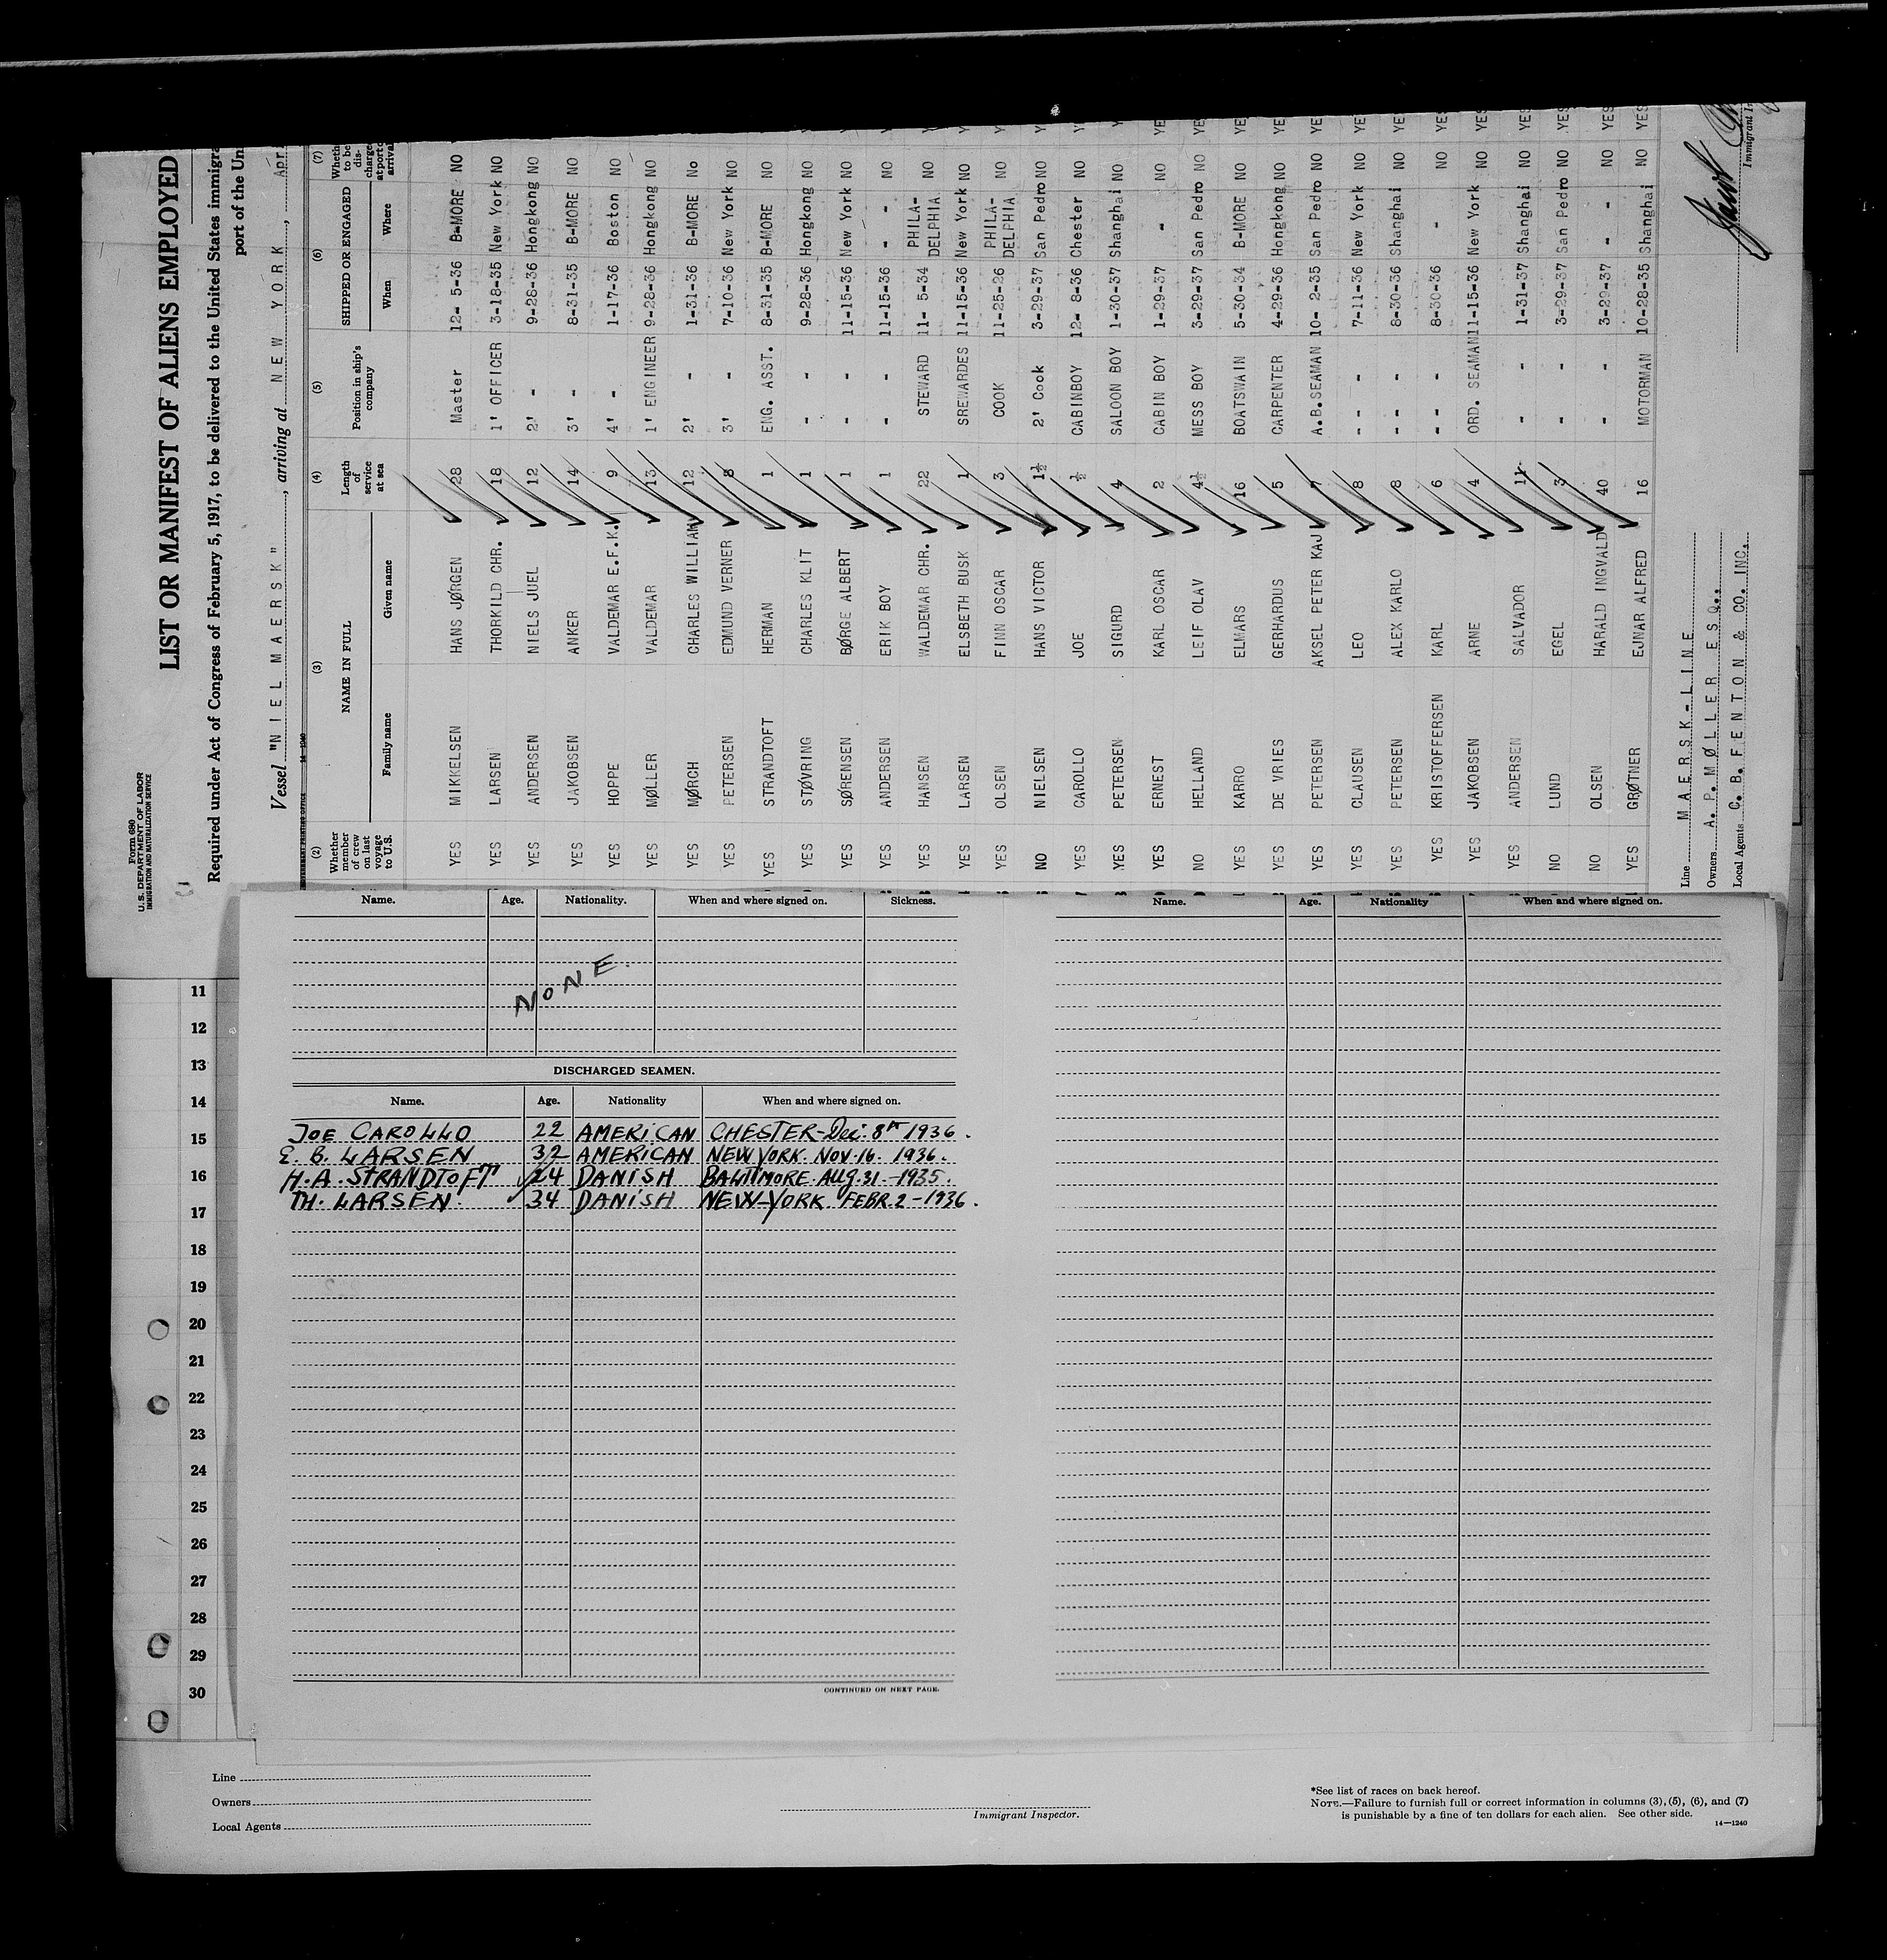 Form 680
U. S. DEPARTMENT OF LABOR
IMMIGRATION AND NATURALIZATION SERVICE
LIST OR MANIFEST OF ALIENS EMPLOYED
Required under Act of Congress of February 5, 1917, to be delivered to the United States immigra
port of the Un
Vessel "NIEL MAERSK", arriving at NEW YORK, Apr
(2) (3) (4) (5) (6) (7)
Whether member of crew on last voyage to U.S. NAME IN FULL Length of service at sea Position in ship's company SHIPPED OR ENGAGED Wheth to be dis- charge at port o arrival
Family name Given name When Where
YES MIKKELSEN HANS JØRGEN 28 Master 12- 5-36 B-MORE NO
YES LARSEN THORKILD CHR. 18 1' OFFICER 3-18-35 New York NO
YES ANDERSEN NIELS JUEL 12 2' - 9-28-36 Hongkong NO
YES JAKOBSEN ANKER 14 3' - 8-31-35 B-MORE NO
YES HOPPE VALDEMAR E.F.K. 9 4' - 1-17-36 Boston NO
YES MØLLER VALDEMAR 13 1' ENGINEER 9-28-36 Hongkong NO
YES MØRCH CHARLES WILLIAM 12 2' - 1-31-36 B-MORE No
YES PETERSEN EDMUND VERNER 8 3' - 7-10-36 New York NO
YES STRANDTOFT HERMAN 1 ENG. ASST. 8-31-35 B-MORE NO
YES STØVRING CHARLES KLIT 1 - - 9-28-36 Hongkong NO
YES SØRENSEN BØRGE ALBERT 1 - - 11-15-36 New York NO
YES ANDERSEN ERIK BOY 1 - - 11-15-36 - - NO
YES HANSEN WALDEMAR CHR. 22 STEWARD 11- 5-34 PHILA-DELPHIA NO
YES LARSEN ELSBETH BUSK 1 SREWARDES 11-15-36 New York NO
YES OLSEN FINN OSCAR 3 COOK 11-25-26 PHILA-DELPHIA NO
NO NIELSEN HANS VICTOR 1½ 2' Cook 3-29-37 San Pedro NO
YES CAROLLO JOE ½ CABINBOY 12- 8-36 Chester NO YE
YES PETERSEN SIGURD 4 SALOON BOY 1-30-37 Shanghai NO
YES ERNEST KARL OSCAR 2 CABIN BOY 1-29-37 - NO YE
NO HELLAND LEIF OLAV 4½ MESS BOY 3-29-37 San Pedro NO YE
YES KARRO ELMARS 16 BOATSWAIN 5-30-34 B-MORE NO YE
YES DE VRIES GERHARDUS 5 CARPENTER 4-29-36 Hongkong NO YE
YES PETERSEN AKSEL PETER KAJ 7 A.B.SEAMAN 10- 2-35 San Pedro NO YE
YES CLAUSEN LEO 8 - - 7-11-36 New York NO YES
YES PETERSEN ALEX KARLO 8 - - 8-30-36 Shanghai NO YES
YES KRISTOFFERSEN KARL 6 - - 8-30-36 - NO YES
YES JAKOBSEN ARNE 4 ORD. SEAMAN 11-15-36 New York NO YES
YES ANDERSEN SALVADOR - - 1-31-37 Shanghai NO YES
NO LUND EGEL 3 - - 3-29-37 San Pedro NO YES
NO OLSEN HARALD INGVALD 40 - - 3-29-37 - - NO YES
YES GRØTNER EJNAR ALFRED 16 MOTORMAN 10-28-35 Shanghai NO YES
Line MAERSK-LINE
Owners A. P. MØLLER ESQ.,
Local Agents C. B. FENTON & CO. INC.
Immigrant In
Name. Age. Nationality. When and where signed on. Sickness.
NONE.
DISCHARGED SEAMEN.
Name. Age. Nationality When and where signed on.
JOE CAROLLO 22 AMERICAN CHESTER-Dec. 8th 1936.
E. B. LARSEN 32 AMERICAN NEW YORK. NOV. 16. 1936.
H. A. STRANDTOFT 24 DANISH BALTIMORE. AUG. 31.-1935.
TH. LARSEN. 34 DANISH NEW-YORK. FEBR. 2-1936.
CONTINUED ON NEXT PAGE.
Name. Age. Nationality When and where signed on.
11
12
13
14
15
16
17
18
19
20
21
22
23
24
25
26
27
28
29
30
Line
Owners
Local Agents
Immigrant Inspector.
*See list of races on back hereof.
NOTE.—Failure to furnish full or correct information in columns (3), (5), (6), and (7)
is punishable by a fine of ten dollars for each alien. See other side.
14—1240